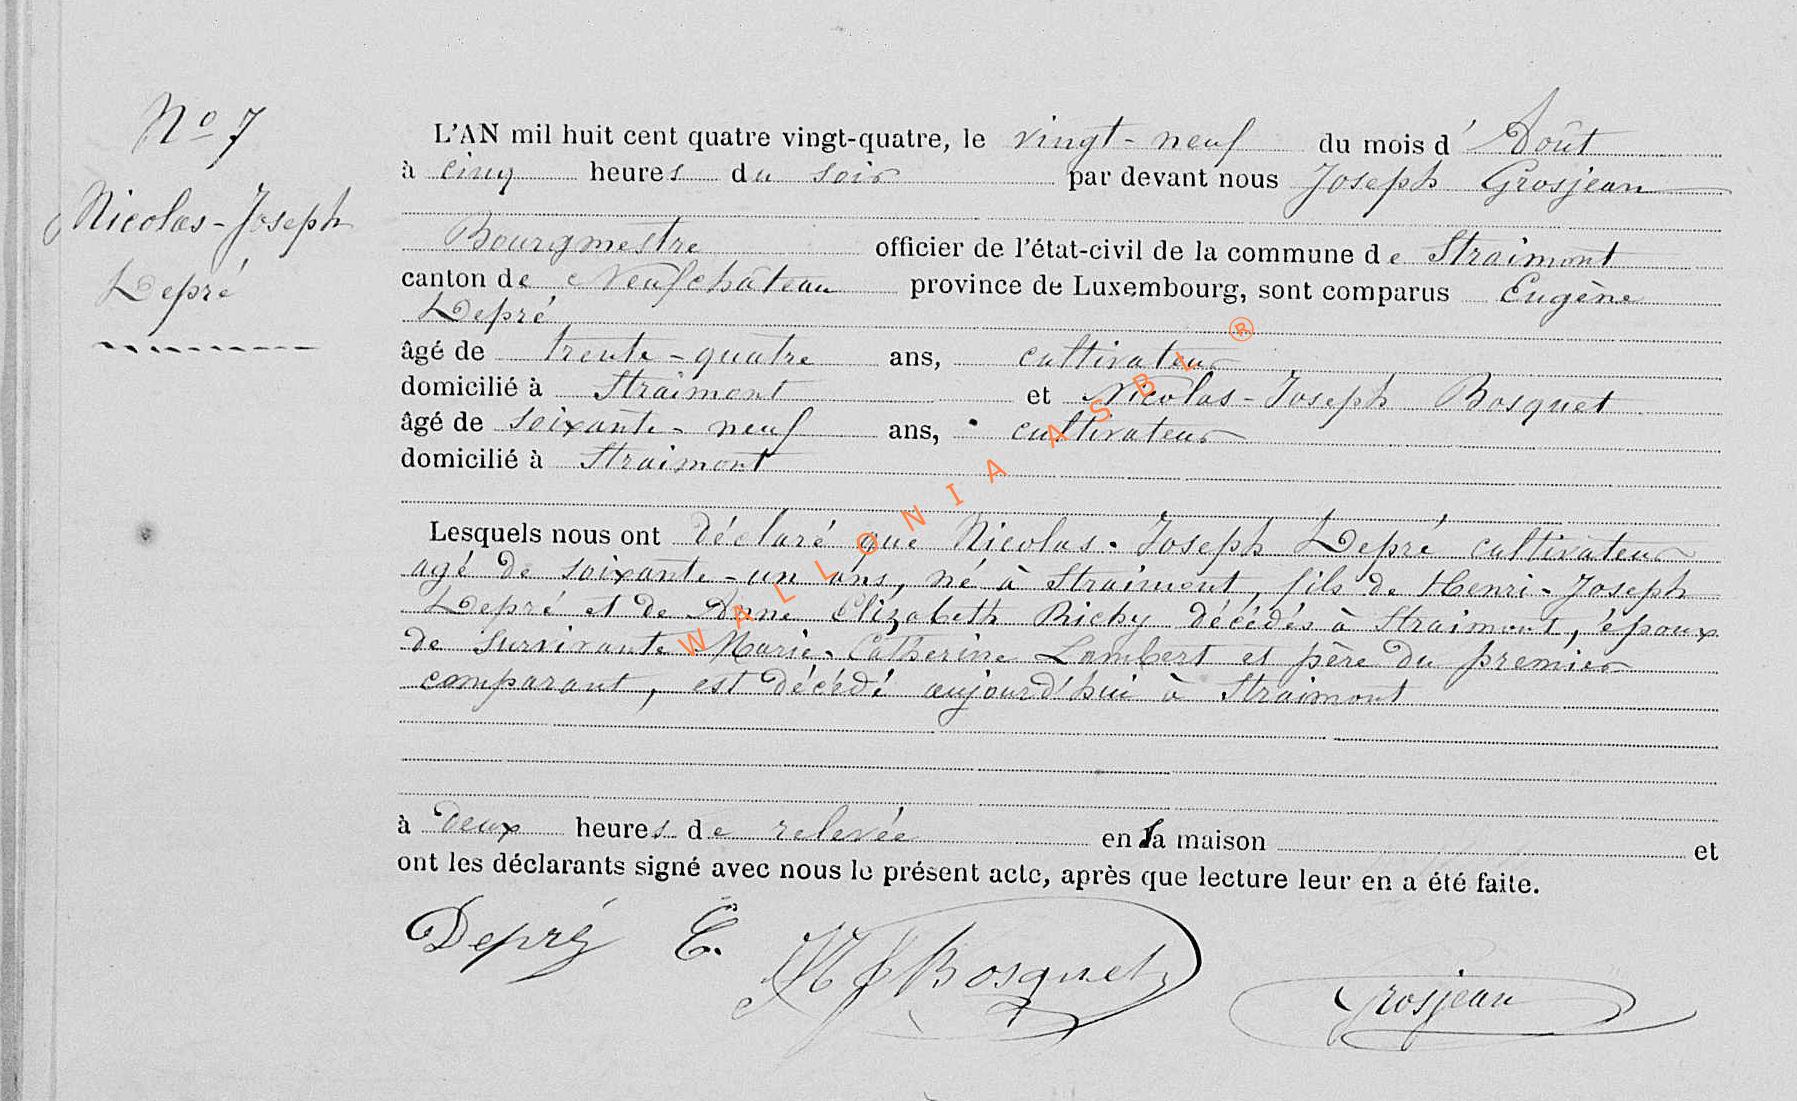 Nº 7
Nicolas-Joseph
Depré
L'AN mil huit cent quatre vingt-quatre, le vingt-neuf du mois d'Août
à cinq heures du soir par devant nous Joseph Grosjean
Bourgmestre officier de l'état-civil de la commune de Straimont
canton de Neufchâteau province de Luxembourg, sont comparus Eugène
Depré
âgé de trente-quatre ans, cultivateur
domicilié à Straimont et Nicolas-Joseph Bosquet
âgé de soixante-neuf ans, cultivateur
domicilié à Straimont
Lesquels nous ont déclaré que Nicolas-Joseph Depré cultivateur
agé de soixante-un ans, né à Straimont, fils de Henri-Joseph
Depré et de Anne Elizabeth Richy décédés à Straimont, époux
de survivante Marie-Catherine Lambert et père du premier
comparant, est décédé aujourd'hui à Straimont
à deux heures de relevée en sa maison et
ont les déclarants signé avec nous le présent acte, après que lecture leur en a été faite.
Depré E. NJ Bosquet Grosjean
WALLONIA ASBL ®